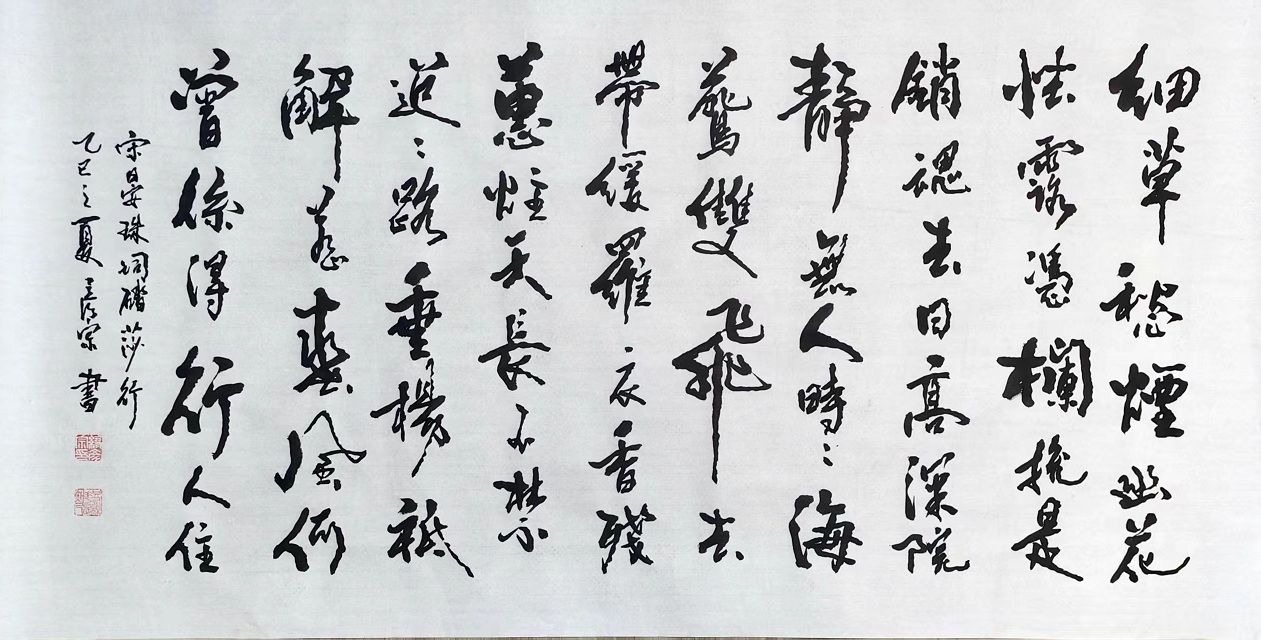 細草愁煙幽花
怯露憑欄揔是
銷魂去日高深院
靜無人時〻海
鷰雙飛去
帶緩羅衣香殘
蕙炷天長不禁
迢〻路垂楊祗
解惹春風何
曾係得行人住
宋晏珠詞踏莎行
乙巳之夏 宗書